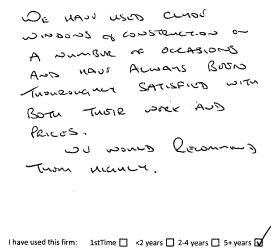 WE HAVE USED CLYDE
WINDOWS & CONSTRUCTION ON
A NUMBER OF OCCASIONS
AND HAVE ALWAYS BEEN
THOROUGHLY SATISFIED WITH
BOTH THEIR WORK AND
PRICES.
WE WOULD RECOMMEND
THEM HIGHLY.
I have used this firm: 1stTime ☐ <2 years ☐ 2-4 years ☐ 5+ years ☑